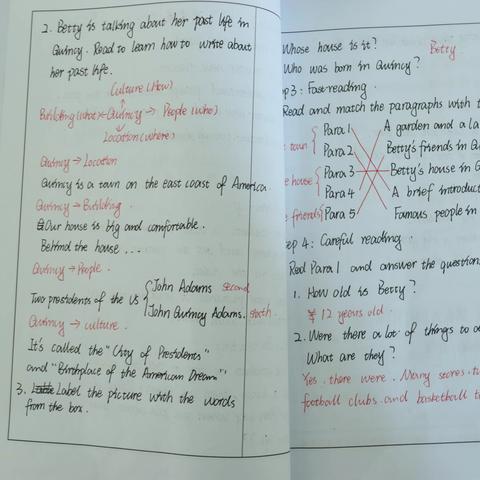 2. Betty is talking about her past life in
Quincy. Read to learn how to write about
her past life.
Culture (How)
Building (what) ← Quincy → People (who)
Location (where)
Quincy → Location
Quincy is a town on the east coast of America.
Quincy → Building.
Our house is big and comfortable.
Behind the house ...
Quincy → People.
Two presidents of the US
John Adams second
John Quincy Adams. sixth
Quincy → culture.
It's called the "City of Presidents"
and "Birthplace of the American Dream"
3. Label the picture with the words
from the box.
Whose house is it? Betty
Who was born in Quincy?
3: Fast reading
Read and match the paragraphs with
town
house
friends
Para 1
Para 2
Para 3
Para 4
Para 5
A garden and a
Betty's friends in
Betty's house in
A brief
Famous people in
4: Careful reading.
Read Para 1 and answer the
1. How old is Betty?
12 years old.
2. Were there a lot of things to
What are they?
Yes, there were. Many stores,
football clubs and basketball